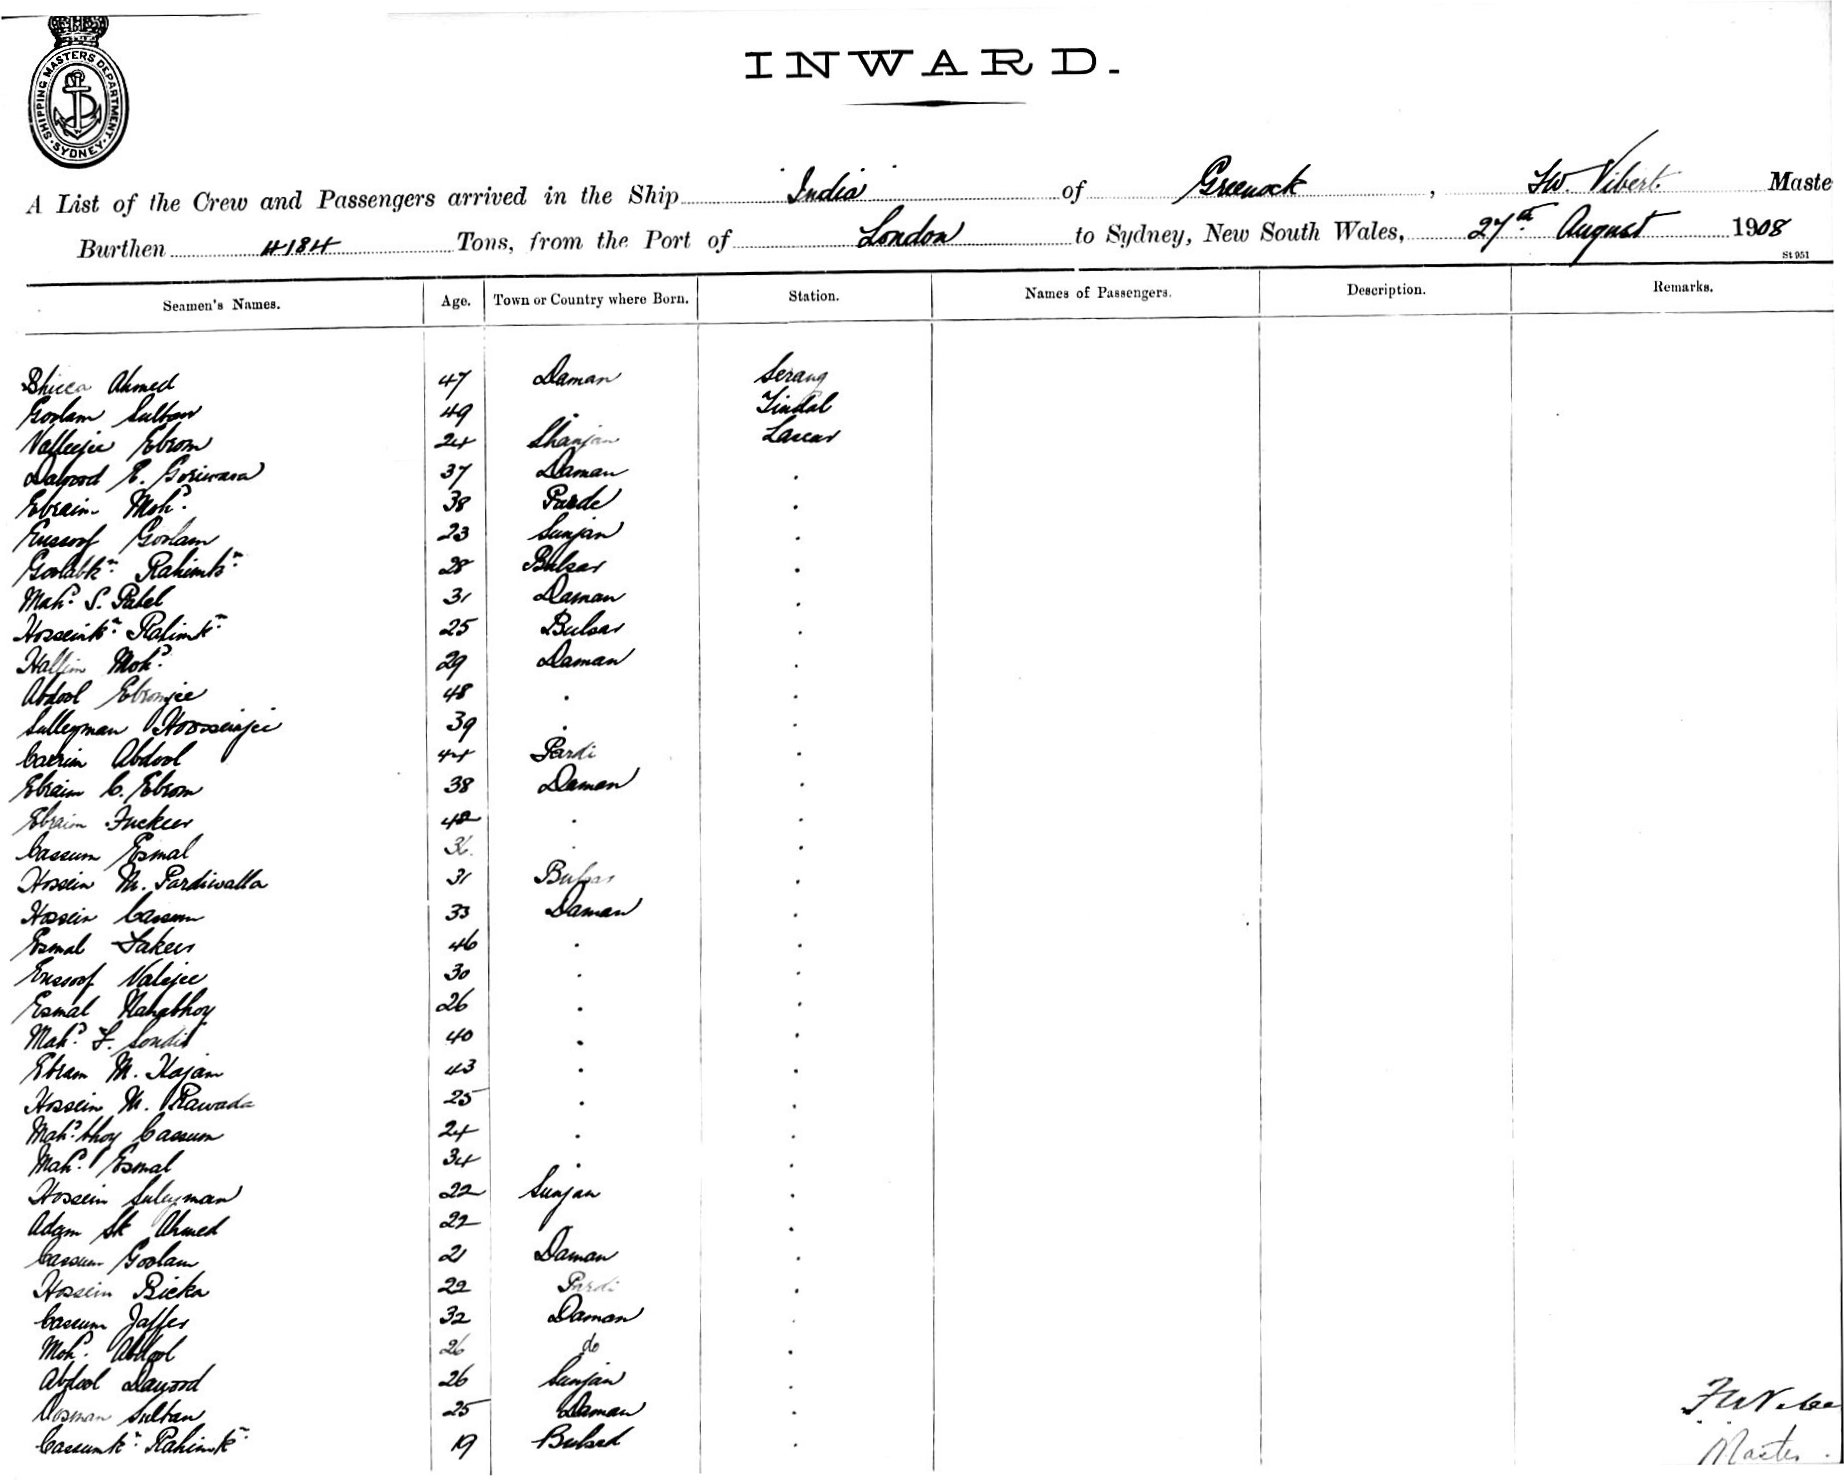 SHIPPING MASTERS DEPARTMENT · SYDNEY ·
INWARD.
A List of the Crew and Passengers arrived in the Ship India of Greenock, F.W. Vibert. Maste
Burthen 4184 Tons, from the Port of London to Sydney, New South Wales, 27th August 1908
St 951
Seamen's Names. Age. Town or Country where Born. Station. Names of Passengers. Description. Remarks.
Bhicca Ahmed 47 Daman Serang
Goolam Sultan 49 . Tindal
Valleejee Ebrom 24 Shanjan Lascar
Dawood E. Goriwara 37 Daman .
Ebraim Moh'd. 38 Parde .
Eussoof Goolam 23 Sunjan .
Goolabkn. Rahimkn. 28 Bulsar .
Mahd. S. Patel 31 Daman .
Hosseinkn. Rahimkn. 25 Bulsar .
Halfim Mohd. 29 Daman .
Abdool Ebromjee 48 . .
Sulleyman Hoosseinjei 39 . .
Carrim Abdool 44 Pardi .
Ebraim C. Ebrom 38 Daman .
Ebraim Fuckeer 42 . .
Cassum Esmal 36 . .
Hossein M. Pardiwalla 31 Bulsar .
Hossein Cassum 33 Daman .
Esmal Fakeer 46 . .
Eussoof Valejee 30 . .
Esmal Nanabhoy 26 . .
Mahd. F. Sondit 40 . .
Ebram M. Hajam 43 . .
Hossein M. Rawada 25 . .
Mahd.bhoy Cassum 24 . .
Mahd. Esmal 34 . .
Hossein Suleyman 22 Sunjan .
Adam Sk Ahmed 22 .
Cassum Goolam 21 Daman .
Hossein Bicka 22 Pardi .
Cassum Jaffer 32 Daman .
Mohd. Abdool 26 do .
Abdool Dawood 26 Sunjan .
Oosman Sultan 25 Daman .
Cassumkn. Rahimkn. 19 Bulsad .
Master